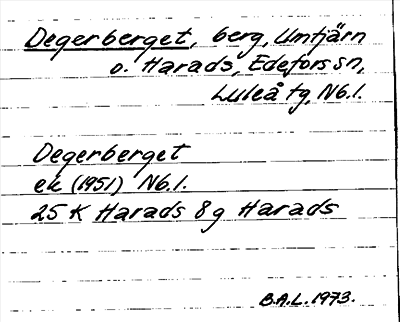 Degerberget, berg, Umtjärn
o. Harads, Edefors sn,
Luleå tg, Nb.l.
Degerberget
ek (1951) Nb.l.
25 K Harads 8 g Harads
B.A.L. 1973.